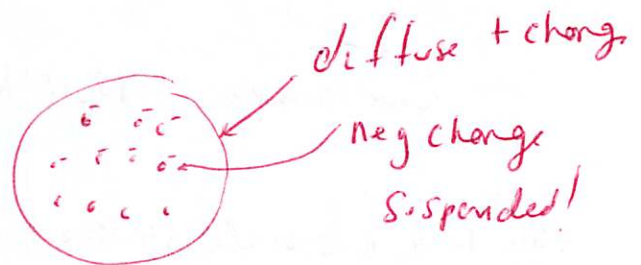 diffuse + charge
neg charge
suspended!